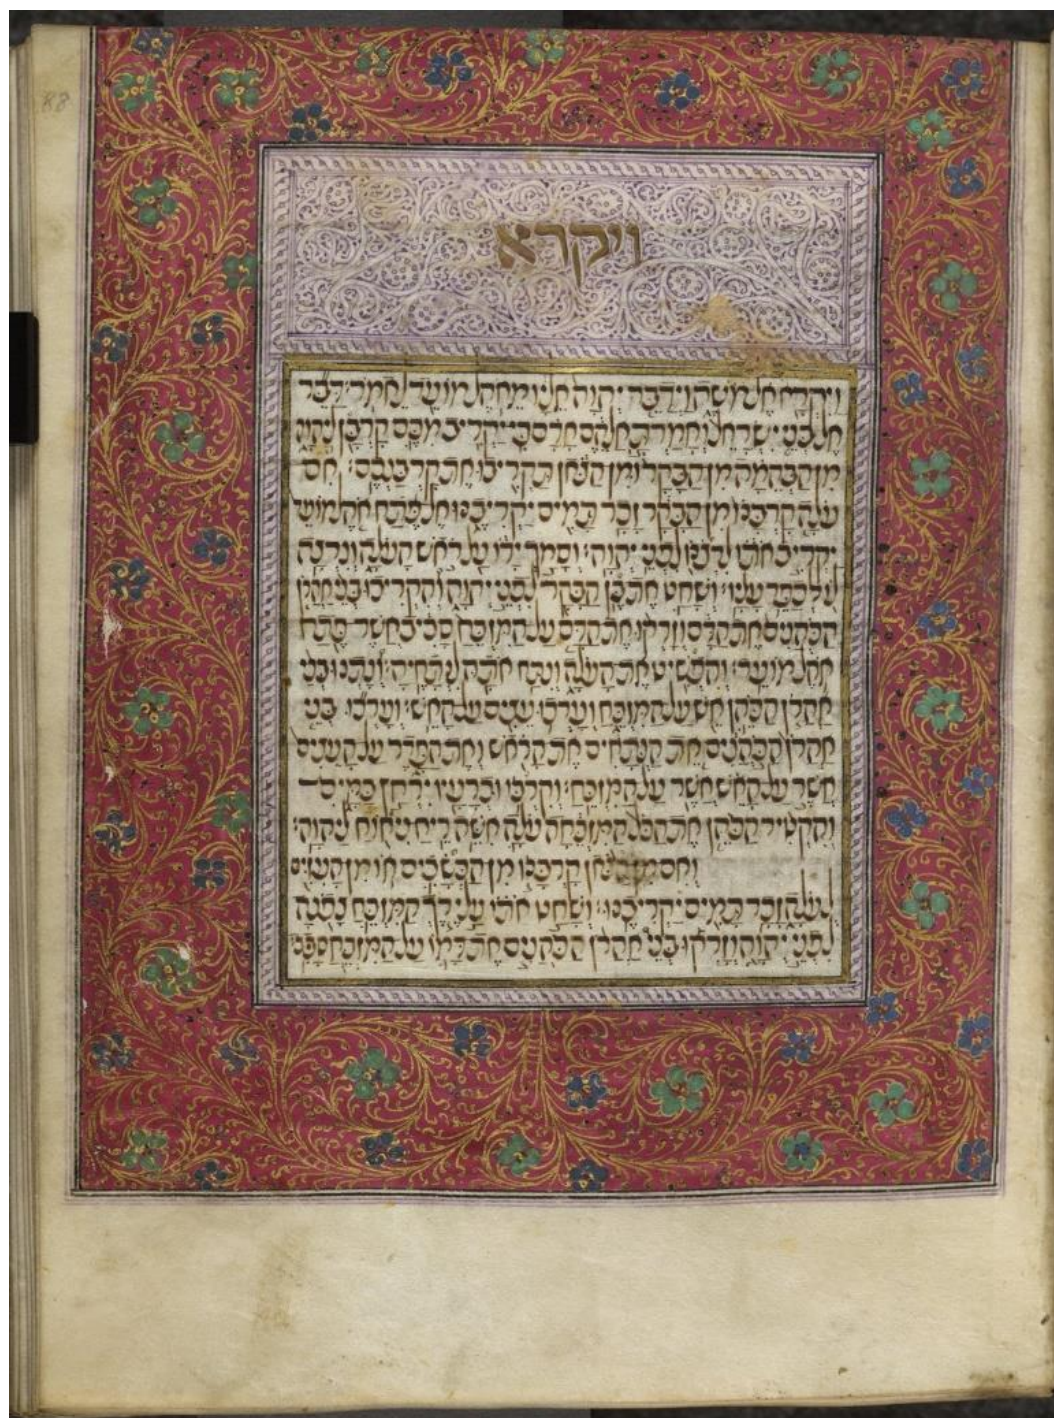 88
ויקרא
ויקרא אל משה וידבר יהוה אליו מאהל מועד לאמר׃ דבר
אל בני ישראל ואמרת אלהם אדם כי יקריב מכם קרבן ליהוה
מן הבהמה מן הבקר ומן הצאן תקריבו את קרבנכם׃ אם
עלה קרבנו מן הבקר זכר תמים יקריבנו אל פתח אהל מועד
יקריב אתו לרצנו לפני יהוה׃ וסמך ידו על ראש העלה ונרצה
לו לכפר עליו׃ ושחט את בן הבקר לפני יהוה והקריבו בני אהרן
הכהנים את הדם וזרקו את הדם על המזבח סביב אשר פתח
אהל מועד׃ והפשיט את העלה ונתח אתה לנתחיה׃ ונתנו בני
אהרן הכהן אש על המזבח וערכו עצים על האש׃ וערכו בני
אהרן הכהנים את הנתחים את הראש ואת הפדר על העצים
אשר על האש אשר על המזבח׃ וקרבו וכרעיו ירחץ במים
והקטיר הכהן את הכל המזבחה עלה אשה ריח ניחוח ליהוה׃
ואם מן הצאן קרבנו מן הכשבים או מן העזים
לעלה זכר תמים יקריבנו׃ ושחט אתו על ירך המזבח צפנה
לפני יהוה וזרקו בני אהרן הכהנים את דמו על המזבח סביב